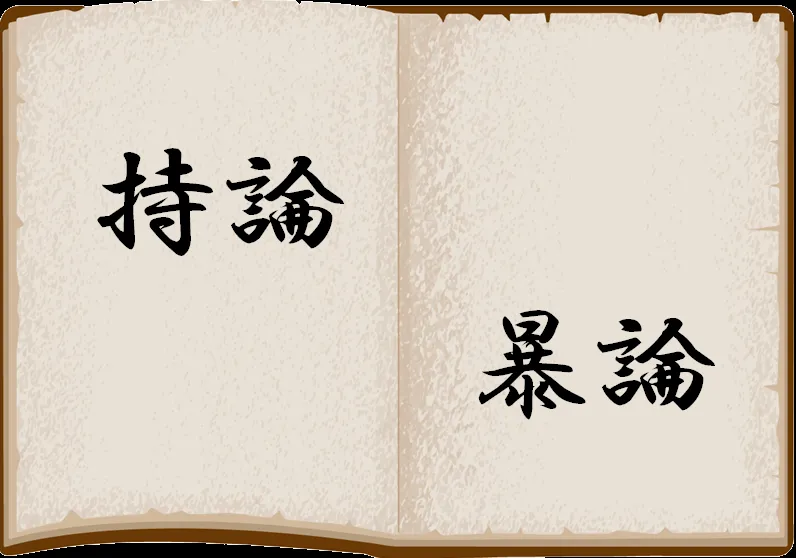 持論
暴論